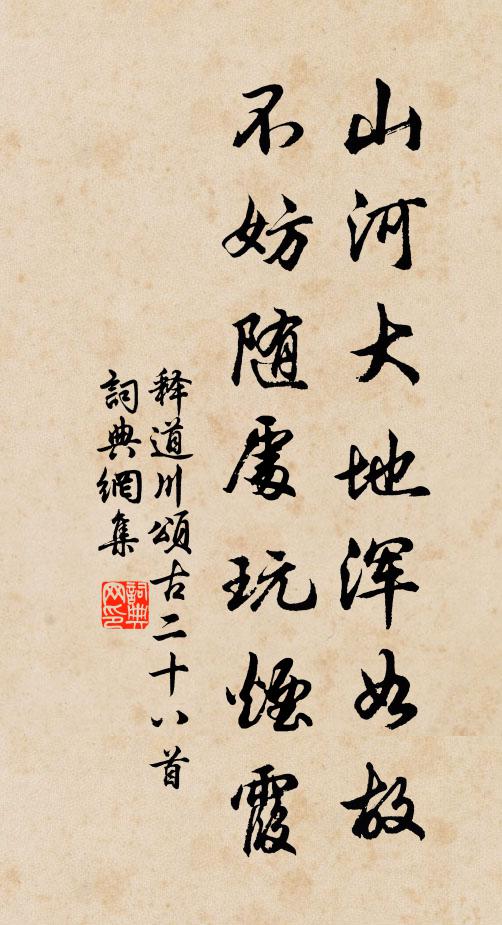 山河大地浑如故
不妨随處玩煙霞
释道川頌古二十八首
詞典網集
詞典网印